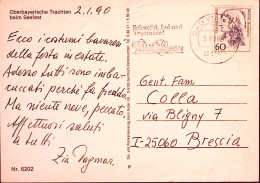 Oberbayerische Trachten
beim Seefest
2.1.90
Ecco i costumi bavaresi
della festa in estate.
Adesso tutti sono imba-
cuccati perché fa freddo.
Ma niente neve, peccato.
Affettuosi saluti
a tutti
Zia Dagmar.
Nr. 6202
60
Gent. Fam.
Colla
via Bligny 7
I-25060 Brescia